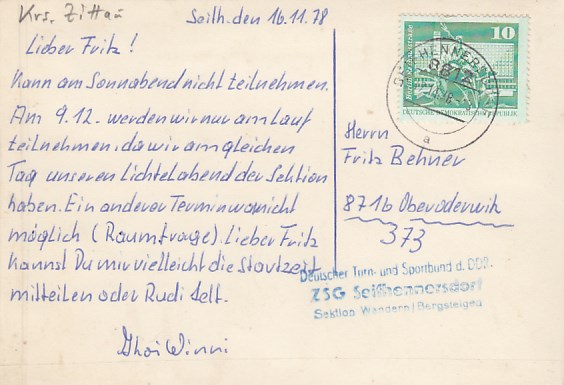 Krs. Zittau
Seifh. den 16.11.78
Lieber Fritz!
Kann am Sonnabend nicht teilnehmen.
Am 9.12. werden wir nur am Lauf
teilnehmen, da wir am gleichen
Tag unseren Lichtelabend der Sektion
haben. Ein anderer Termin war nicht
möglich (Raumfrage). Lieber Fritz
kannst Du mir vielleicht die Startzeit
mitteilen oder Rudi Selt.
Winni
10
DEUTSCHE DEMOKRATISCHE REPUBLIK
SEIFHENNERSDORF
8812
a
Herrn
Fritz Behner
8716 Oberoderwitz
373
Deutscher Turn- und Sportbund d. DDR
ZSG Seifhennersdorf
Sektion Wandern/Bergsteigen